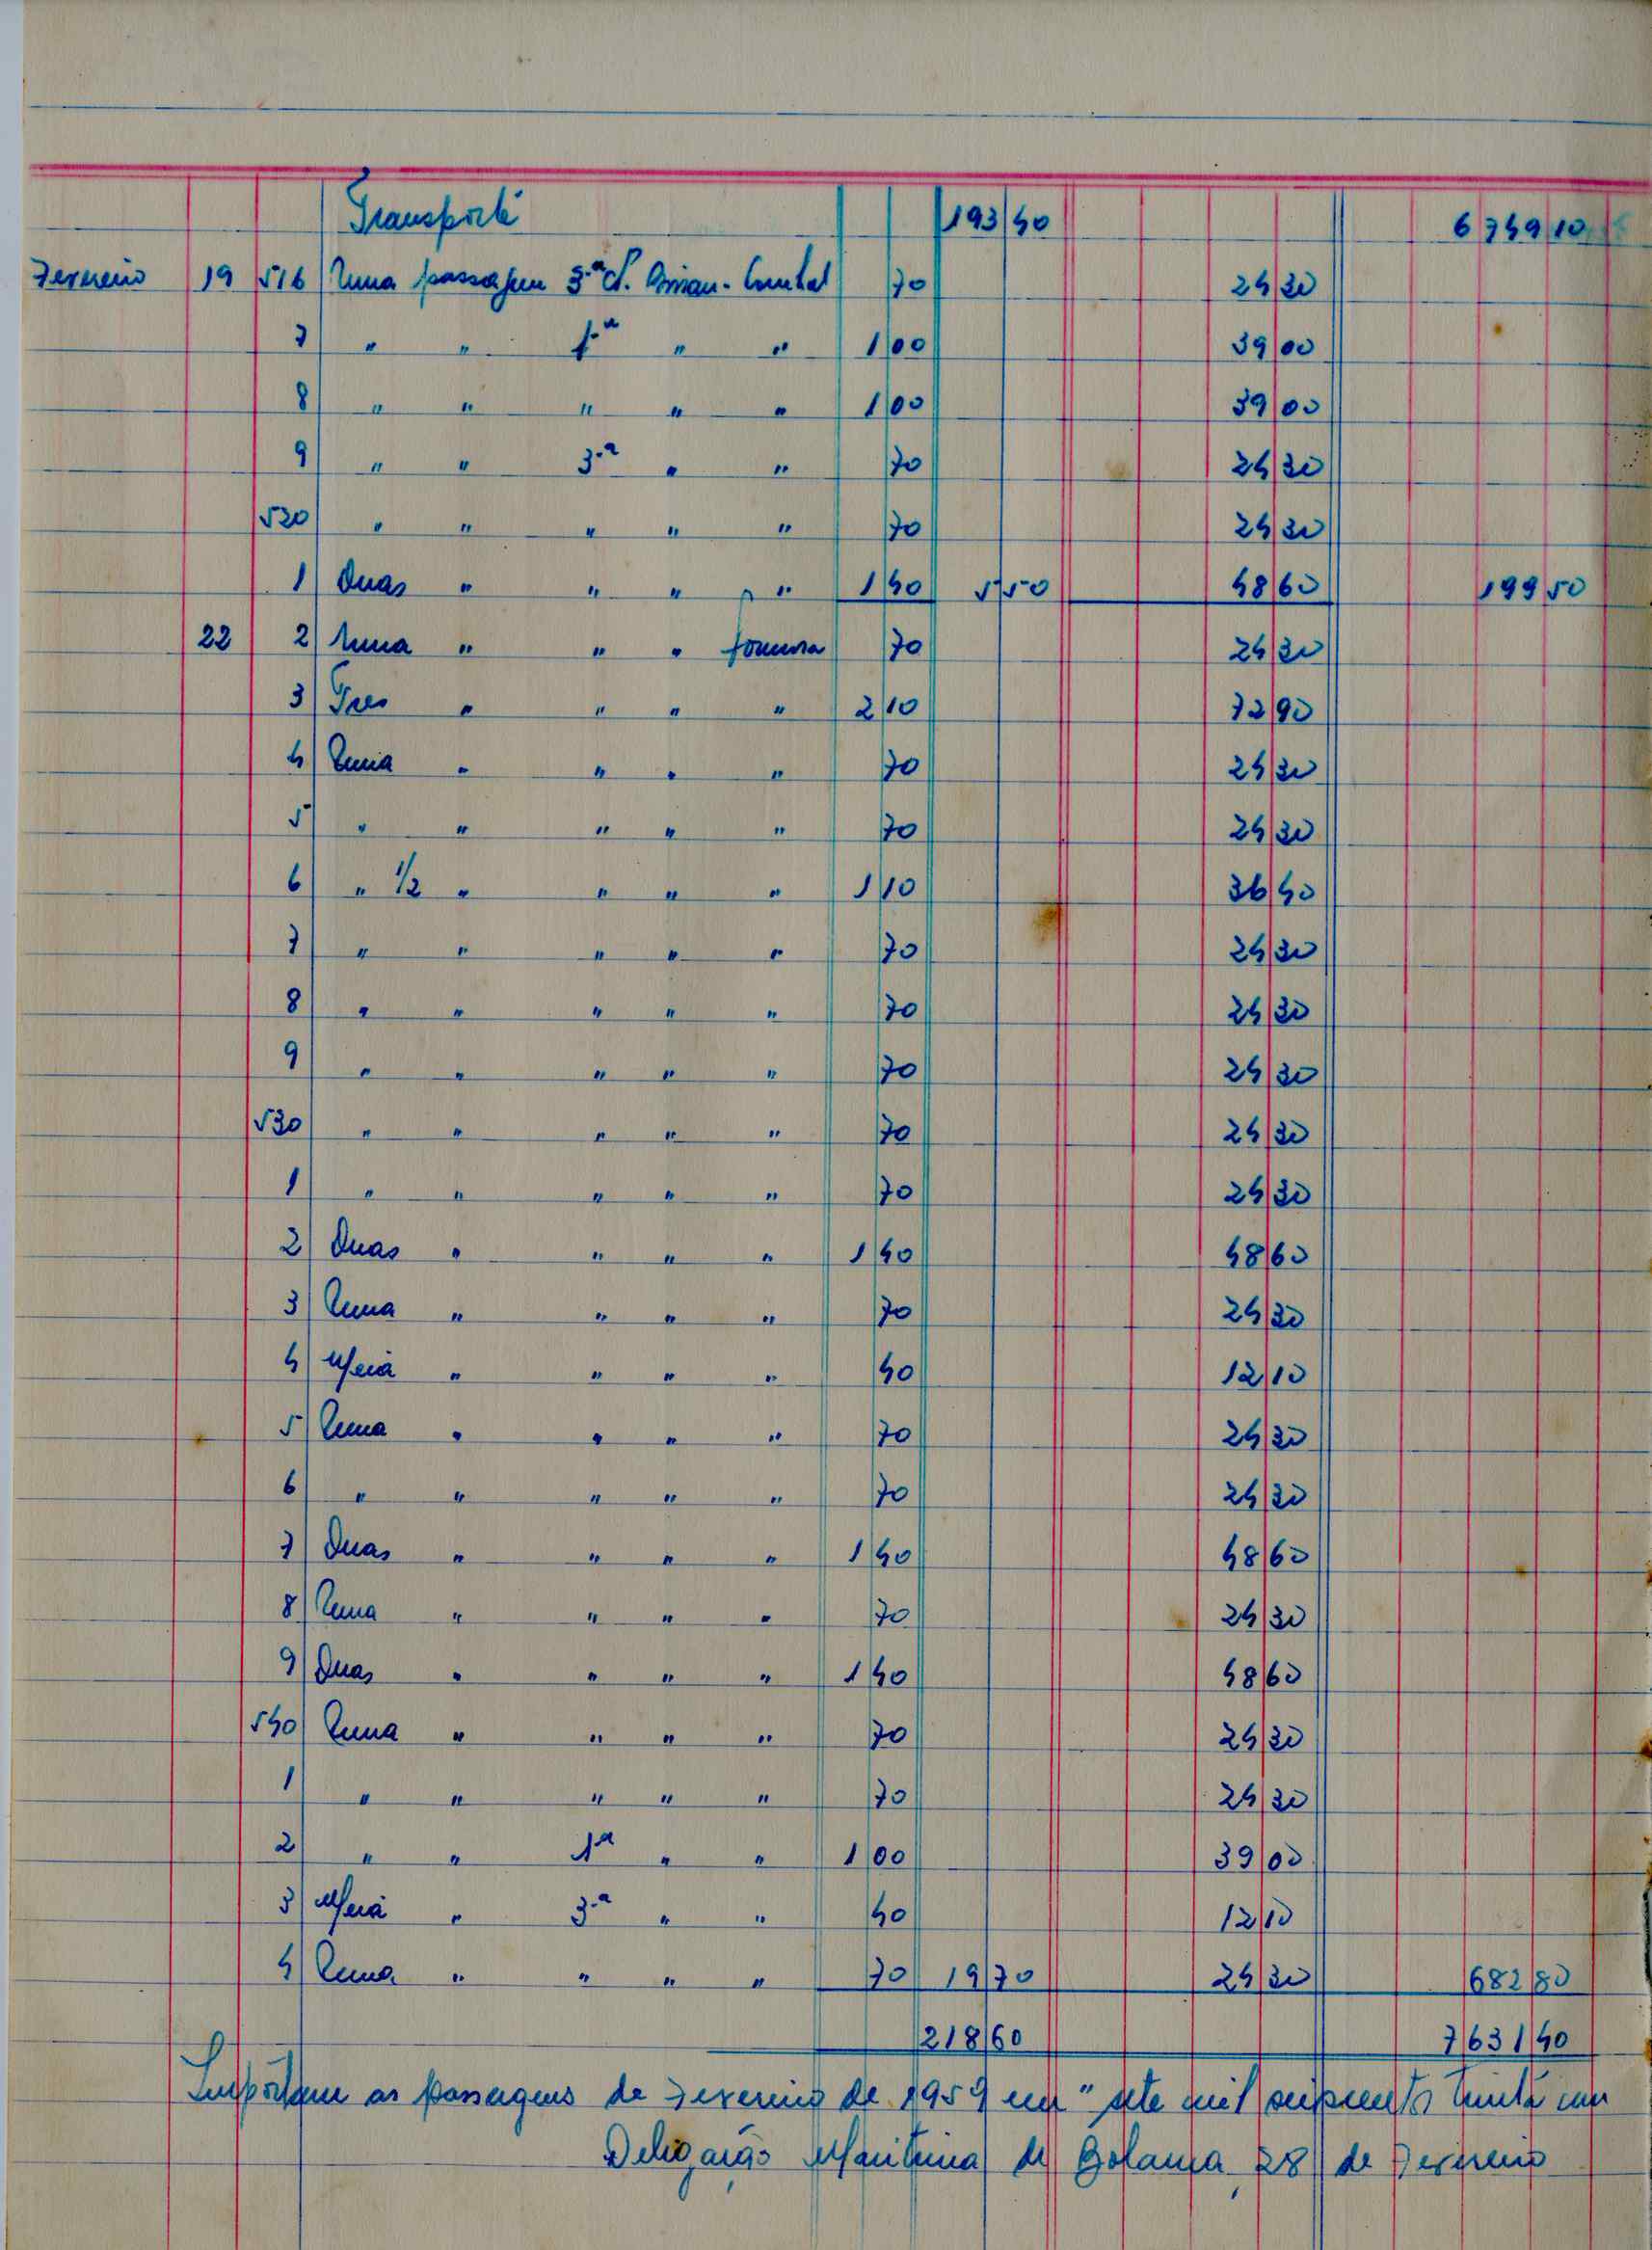 Transporte 193 40 6 749 10
Fevereiro 19 516 Uma passagem 3.ª cl. 70 24 30
7 " " 1.ª " " 1 00 39 00
8 " " " " " 1 00 39 00
9 " " 3.ª " " 70 24 30
520 " " " " " 70 24 30
1 Duas " " " " 1 40 5 50 48 60 199 50
22 2 Uma " " " 70 24 30
3 Tres " " " " 2 10 72 90
4 Uma " " " " 70 24 30
5 " " " " " 70 24 30
6 " 1/2 " " " " 1 10 36 40
7 " " " " " 70 24 30
8 " " " " " 70 24 30
9 " " " " " 70 24 30
530 " " " " " 70 24 30
1 " " " " " 70 24 30
2 Duas " " " " 1 40 48 60
3 Uma " " " " 70 24 30
4 Meia " " " " 40 12 10
5 Uma " " " " 70 24 30
6 " " " " " 70 24 30
7 Duas " " " " 1 40 48 60
8 Uma " " " " 70 24 30
9 Duas " " " " 1 40 48 60
540 Uma " " " " 70 24 30
1 " " " " " 70 24 30
2 " " 1ª " " 1 00 39 00
3 Meia " 3.ª " " 40 12 10
4 Uma " " " " 70 19 70 24 30 682 80
218 60 7 631 40
Importam as passagens de Fevereiro de 1959 em " sete mil seiscentos trinta um
Delegação Maritima de Bolama, 28 de Fevereiro